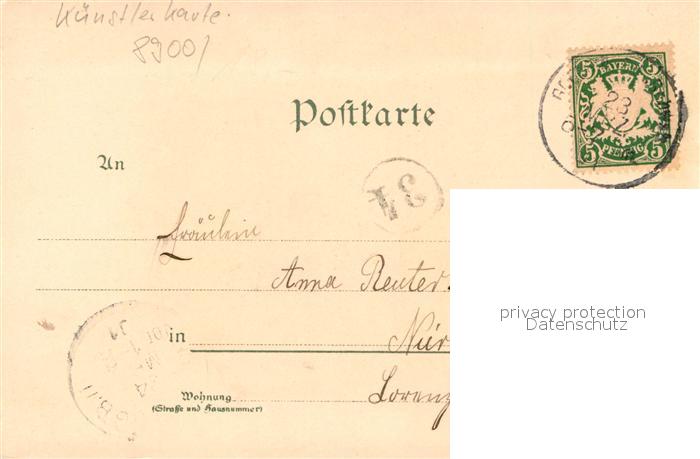 Künstlerkarte.
8900/
5 BAYERN 5
5 PFENNIG 5
Postkarte
An
34
Fräulein
Anna Reuter.
privacy protection
Datenschutz
in Nür
Wohnung
(Straße und Hausnummer)
Lorenz